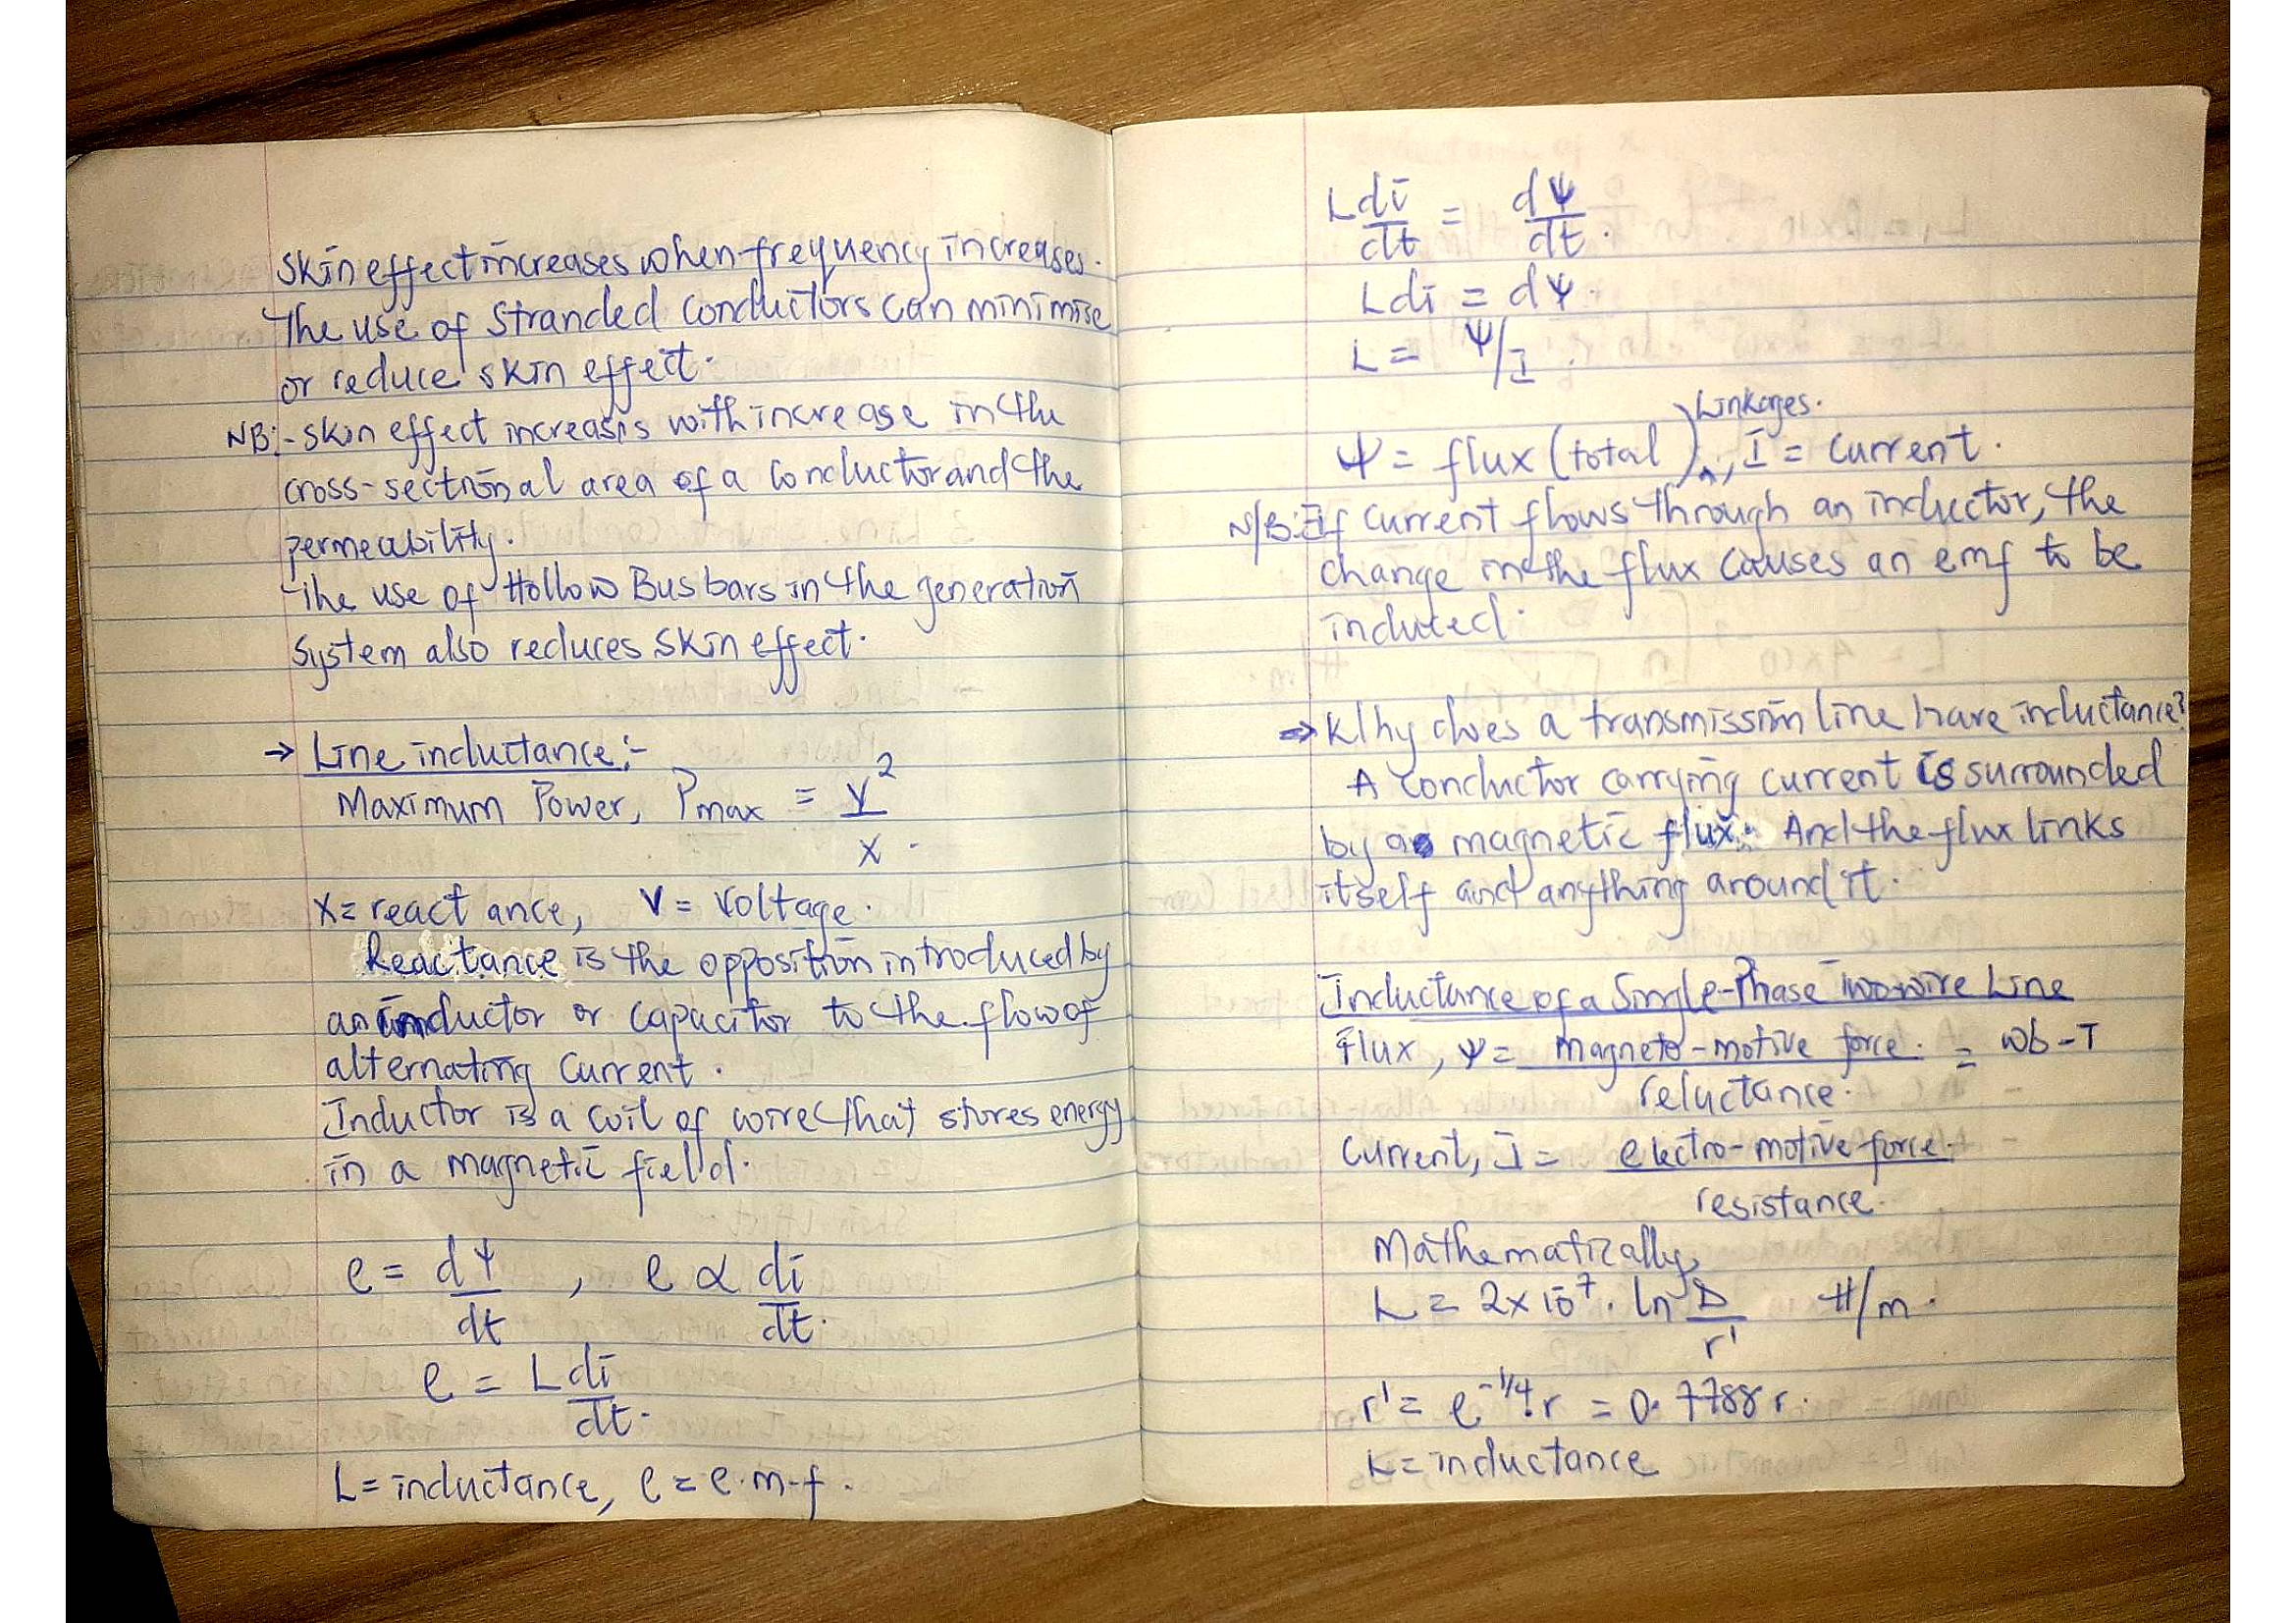 Skin effect increases when frequency increases.
The use of stranded conductors can minimise
or reduce skin effect.
NB:- skin effect increases with increase in the
cross-sectional area of a conductor and the
permeability.
The use of Hollow Bus bars in the generation
system also reduces skin effect.
→ Line inductance:-
Maximum Power, Pmax = V²/X.
X = reactance, V = Voltage.
Reactance is the opposition introduced by
an inductor or capacitor to the flow of
alternating current.
Inductor is a coil of wire that stores energy
in a magnetic field.
e = dΨ/dt, e α di/dt.
e = L di/dt.
L = inductance, e = e.m.f.
L di/dt = dΨ/dt.
Ldi = dΨ.
L = Ψ/I.
Ψ = flux (total) Linkages, I = current.
N/B: If current flows through an inductor, the
change in the flux causes an emf to be
induced.
⇒ Why does a transmission line have inductance?
A conductor carrying current is surrounded
by a magnetic flux. And the flux links
itself and anything around it.
Inductance of a Single-Phase Two wire Line
Flux, Ψ = magneto-motive force / reluctance. = wb-T
Current, I = electro-motive force / resistance.
Mathematically,
L = 2 x 10⁻⁷. ln D/r' H/m.
r' = e^-1/4. r = 0.7788 r.
L = inductance